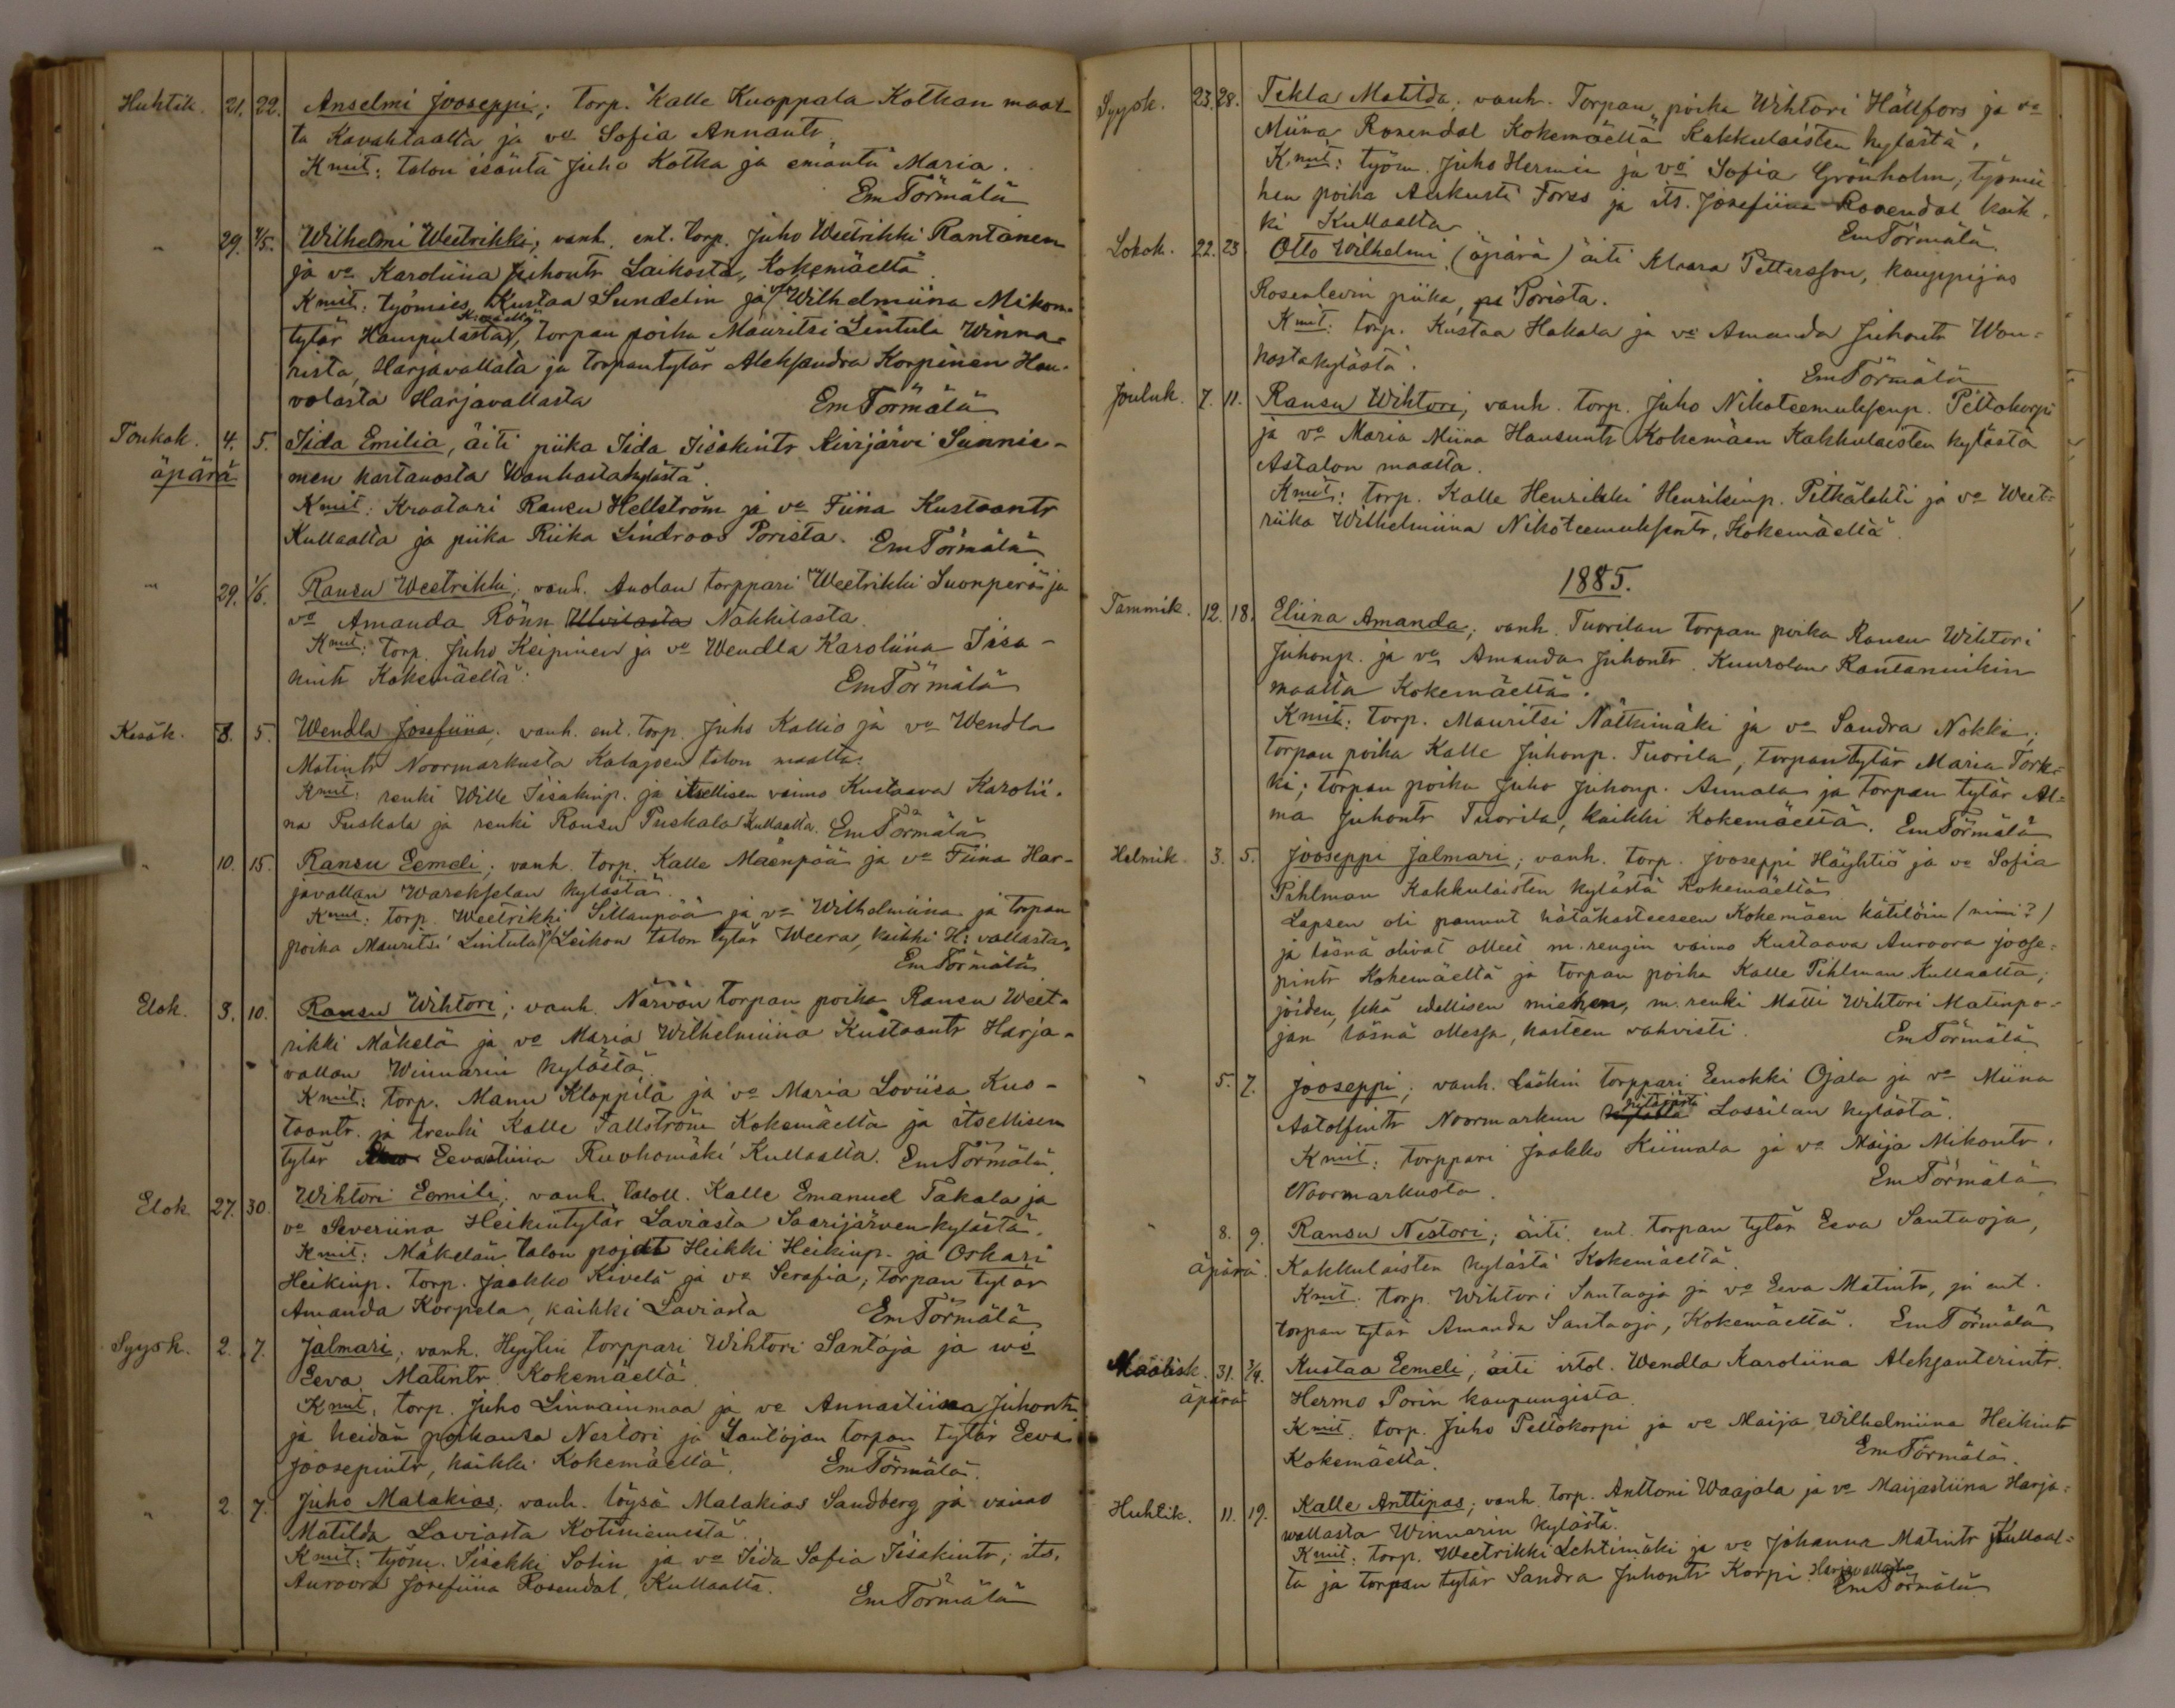 Huhtik. 21. 22. Anselmi Jooseppi; torp. Kalle Knoppala Kotkan maal-
ta Kavahtaalta ja vo Sofia Annantr.
Kmit: talon isäntä Juho Kotka ja emäntä Maria.
Em Törmälä
" 29. 4/5. Wilhelmi Weetrikki; vanh. ent. torp. Juho Weetrikki Rantanen
ja vo Karoliina Juhontr. Laikosta, Kokemäeltä.
Kmit: työmies Kustaa Sundelin ja vo Wilhelmiina Mikon-
tytär Hampulasta, Kmäeltä, torpan poika Mauritsi Lintula Winna-
rista, Harjavallala ja torpantytär Aleksandra Korpinen Hau-
volasta Harjavallasta Em Törmälä
Toukok. 4. 5. Iida Emilia, äiti piika Iida Iisakintr Kivijärvi Sunnie-
äpärä men kartanosta Wanhastakylästä.
Kmit: Kraatari Ransu Hellström ja vo Fiina Kustaantr
Kullaalta ja piika Riika Lindroos Porista. Em Törmälä
" 29. 1/6. Ransu Weetrikki; vanh. Anolan torppari Weetrikki Suonperä ja
vo Amanda Rönn Ulvilasta Nakkilasta.
Kmit: torp. Juho Keipinen ja vo Wendla Karoliina Iisa-
kintr Kokemäeltä. Em Törmälä
Kesäk. 3. 5. Wendla Josefiina; vanh. ent. torp. Juho Kallio ja vo Wendla
Matintr Noormarkusta Katajsen talon maalta.
Kmit: renki Wille Iisakinp. ja itsellisen vaimo Kustaava Karolii-
na Puskala ja renki Ransu Puskala Kullaalta. Em Törmälä
" 10. 15. Ransu Eemeli; vanh. torp. Kalle Mäenpää ja vo Fiina Har-
javallan Warekselan kylästä.
Kmit: torp. Weetrikki Sillanpää ja vo Wilhelmiina ja torpan
poika Mauritsi Lintula ja Leikon talon tytär Weera, kaikki H:vallasta.
Em Törmälä
Elok. 3. 10. Ransu Wihtori; vanh. Närvän torpan poika Ransu Weet-
rikki Mäkelä ja vo Maria Wilhelmiina Kustaantr Harja-
vallan Winnarin kylästä.
Kmit: torp. Manu Kloppila ja vo Maria Loviisa Kus-
taantr. ja trenki Kalle Fallström Kokemäeltä ja itsellisen
tytär Eevastiina Ruohomäki Kullaalta. Em Törmälä
Elok. 27. 30. Wihtori Eemili; vanh. taloll. Kalle Emanuel Takala ja
vo Severiina Heikintytär Laviasta Saarijärven kylästä.
Kmit: Mäkelän talon pojat Heikki Heikinp. ja Oskari
Heikinp. torp. Jaakko Kivelä ja vo Serafia; torpan tytär
Amanda Korpela, kaikki Laviasta Em Törmälä
Syysk. 2. 7. Jalmari; vanh. Hyylin torppari Wihtori Santoja ja wo
Eeva Matintr. Kokemäeltä.
Kmit: torp. Juho Linnainmaa ja vo Annastiina Juhontr
ja heidän poikansa Nestori ja Santojan torpan tytär Eeva
Joosepintr, kaikki Kokemäeltä. Em Törmälä.
" 2. 7. Juho Malakias; vanh. löysä Malakias Sandberg ja vaimo
Matilda Laviasta Kotiniemestä.
Kmit: työm. Iisakki Solin ja vo Iida Sofia Iisakintr; its.
Auroora Josefiina Rosendal, Kullaalta. Em Törmälä
Syysk. 23. 28. Tekla Matilda; vanh. Torpan poika Wihtori Hällfors ja vo
Miina Rosendal Kokemäeltä Kakkulaisten kylästä.
Kmit: työm. Juho Hermin ja vo Sofia Grönholm; työmie
hen poika Aukusti Forss ja its. Josefiina Rosendal kaik-
ki Kullaalta Em Törmälä
Lokok. 22. 23. Otto Wilhelmi (äpärä) äiti Klaara Pettersson, kauppijas
Rosenlevin piika, Porista.
Kmit: torp. Kustaa Hakala ja vo Amanda Juhontr Wan-
hastakylästä.
Em Törmälä
Jouluk. 7. 11. Ransu Wihtori; vanh. torp. Juho Nikoteemuksenp. Peltokorpi
ja vo Maria Miina Hansuntr Kokemäen Kakkulaisten kylästä
Astalon maalta.
Kmit: torp. Kalle Henrikki Henrikinp. Pitkälahti ja vo Weet-
riika Wilhelmiina Nikoteemuksentr, Kokemäeltä.
1885.
Tammik. 12. 18. Eliina Amanda; vanh. Tuorilan torpan poika Ransu Wihtori
Juhonp. ja vo Amanda Juhontr. Kuurolan Rantannikin
maalta Kokemäeltä.
Kmit: torp. Mauritsi Nätkimäki ja vo Sandra Nokki;
torpan poika Kalle Juhonp. Tuorila, torpantytär Maria Tork-
ki; torpan poika Juho Juhonp. Annala ja torpan tytär Al-
ma Juhontr Tuorila, kaikki Kokemäeltä. Em Törmälä
Helmik. 3. 5. Jooseppi Jalmari; vanh. torp. Jooseppi Häyhtiö ja vo Sofia
Pihlman Kakkulaisten kylästä Kokemäeltä
Lapsen oli pannut hätäkasteeseen Kokemäen kätilöin (nimi?)
ja läsnä olivat olleet m. rengin vaimo Kustaava Auroora Joose-
pintr Kokemäeltä ja torpan poika Kalle Pihlman Kullaalta;
joiden, sekä edellisen miehen, m. renki Matti Wihtori Matinpo-
jan läsnä ollessa, kasteen vahvisti. Em Törmälä
" 5. 7. Jooseppi; vanh. Läskin torppari Eenokki Ojala ja vo Miina
Aatolfintr Noormarkun pitäjästä Lassilan kylästä.
Kmit: torppari Jaakko Kiimala ja vo Maija Mikontr.
Noormarkusta. Em Törmälä
" 8. 9. Ransu Nestori; äiti ent. torpan tytär Eeva Santaoja,
äpärä. Kakkulaisten kylästä Kokemäeltä.
Kmit: torp. Wihtori Santaoja ja vo Eeva Matintr, ja ent.
torpan tytär Amanda Santaoja, Kokemäeltä. Em Törmälä
Maalisk. 31. 3/4. Kustaa Eemeli; äiti irtol. Wendla Karoliina Aleksanterintr
äpärä Hermo Porin kaupungista.
Kmit: torp. Juho Peltokorpi ja vo Maija Wilhelmiina Heikintr
Kokemäeltä. Em Törmälä.
Huhtik. 11. 19. Kalle Anttipas; vanh. torp. Anttoni Waajala ja vo Maijastiina Harja-
vallasta Winnarin kylästä.
Kmit: torp. Weetrikki Lehtimäki ja vo Johanna Matintr Kullaal-
ta ja torpan tytär Sandra Juhontr Korpi Harjavallasta
Em Törmälä